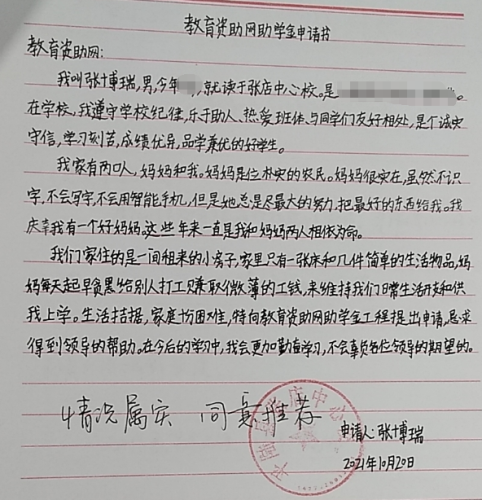 教育资助网助学金申请书
教育资助网：
我叫张博瑞，男，今年，就读于张店中心校。是。
在学校，我遵守学校纪律，乐于助人、热爱班体、与同学们友好相处，是个诚实
守信，学习刻苦，成绩优异，品学兼优的好学生。
我家有两口人，妈妈和我。妈妈是位朴实的农民。妈妈很实在，虽然不识
字，不会写字，不会用智能手机，但是她总是尽最大的努力，把最好的东西给我。我
庆幸我有一个好妈妈，这些年来一直是我和妈妈两人相依为命。
我们家住的是一间租来的小房子，家里只有一张床和几件简单的生活物品，妈
妈每天起早贪黑给别人打工只赚取微薄的工钱，来维持我们日常生活开支和供
我上学。生活拮据，家庭困难，特向教育资助网助学金工程提出申请，恳求
得到领导的帮助。在今后的学习中，我会更加勤奋学习，不会辜负各位领导的期望的。
情况属实 同意推荐
平陆县张店中心校
申请人：张博瑞
2021年10月20日